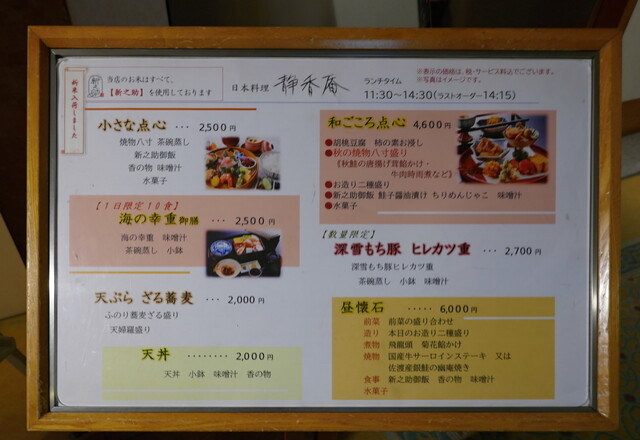 新米入荷しました
当店のお米はすべて、
【新之助】を使用しております
日本料理 静香庵
ランチタイム
11:30～14:30(ラストオーダー14:15)
※表示の価格は、税・サービス料込でございます。
※写真はイメージです。
小さな点心 ･･･ 2,500円
焼物八寸 茶碗蒸し
新之助御飯
香の物 味噌汁
水菓子
【1日限定10食】
海の幸重御膳 ･･･ 2,500円
海の幸重 味噌汁
茶碗蒸し 小鉢
天ぷら ざる蕎麦 ･･･ 2,000円
ふのり蕎麦ざる盛り
天婦羅盛り
天丼 ････････ 2,000円
天丼 小鉢 味噌汁 香の物
和ごころ点心 4,600円
●胡桃豆腐 柿の素お浸し
●秋の焼物八寸盛り
《秋鮭の唐揚げ茸餡かけ・
牛肉時雨煮など》
●お造り二種盛り
●新之助御飯 鮭子醤油漬け ちりめんじゃこ 味噌汁
●水菓子
【数量限定】
深雪もち豚 ヒレカツ重 ･･･ 2,700円
深雪もち豚ヒレカツ重
茶碗蒸し 小鉢 味噌汁
昼懐石 ･････ 6,000円
前菜 前菜の盛り合わせ
造り 本日のお造り二種盛り
煮物 飛龍頭 菊花餡かけ
焼物 国産牛サーロインステーキ 又は
佐渡産銀鮭の幽庵焼き
食事 新之助御飯 香の物 味噌汁
水菓子